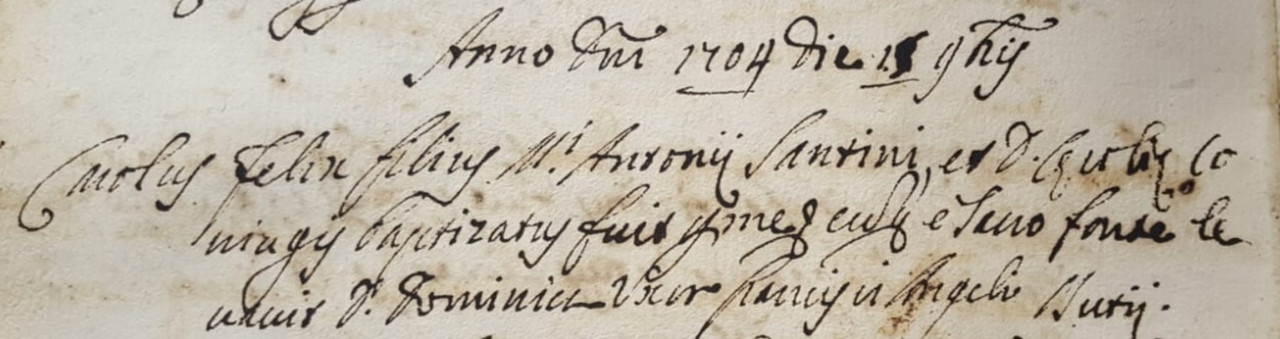 Anno Dni 1704 die 15 9bris
Carolus Felix filius M.i Antonij Santini, et D. Co
niugij baptizatus fuit eusq e Sacro fonte le
uauit D. Dominica Uxor Angeli Butij.